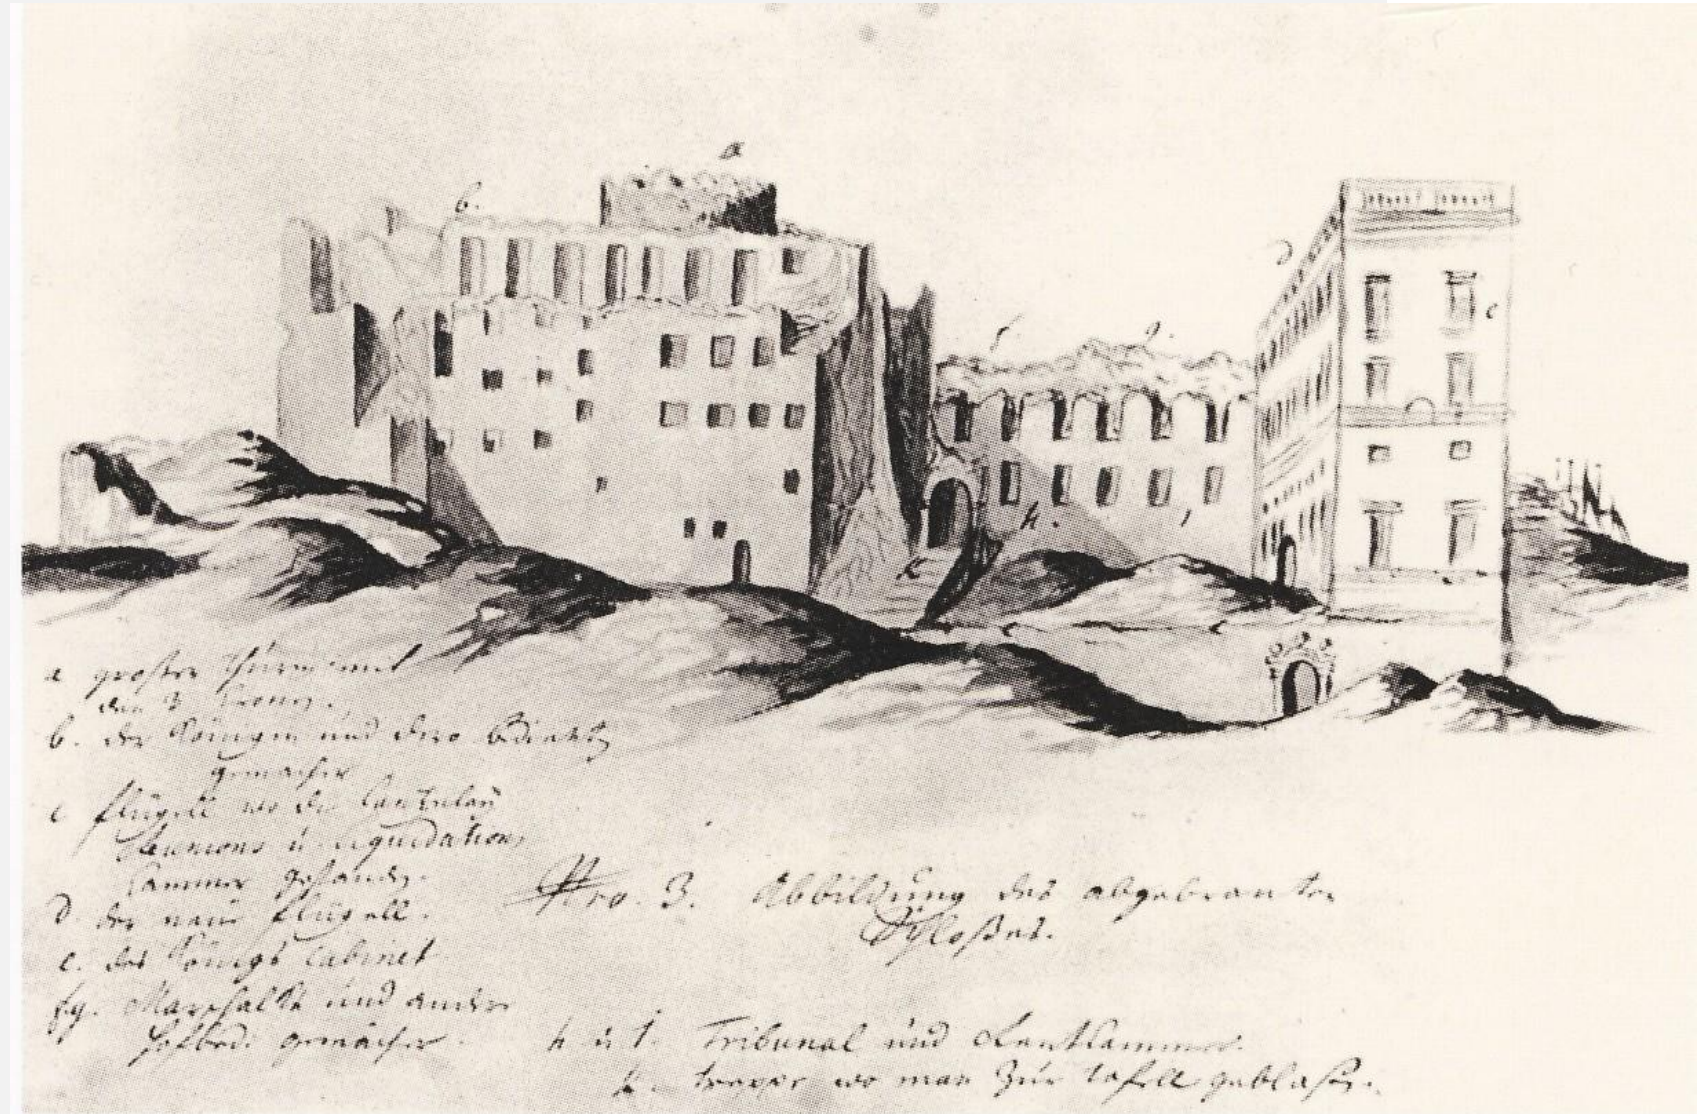 a
b.
D
e
f
g.
h.
i
k
a großer thurm mit
den 3 Cronen.
b. der Königin und dero bedienten
gemächer
c flügell wo die Cantzeley
Reunions u. Liquidations
Cammer gestanden.
D. der neue flügell.
e. des Königs Cabinet
fg. Marschalls und ander
hofbedi gemächer.
Nro. 3. Abbildung des abgebranten
Schloßes.
h u i. Tribunal und Rentkammer.
k. treppe wo man zur tafell geblasen.